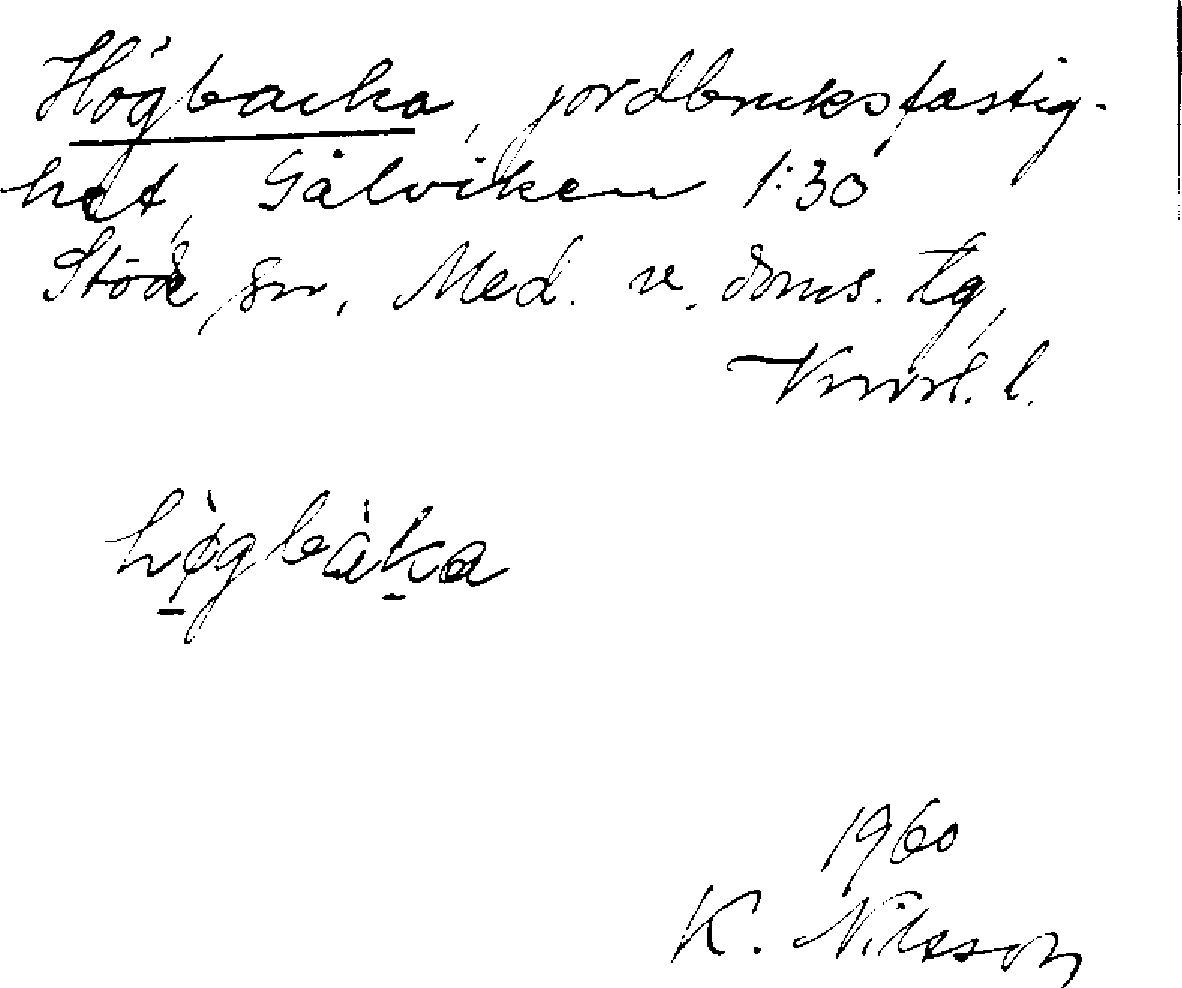 Högbacka, jordbruksfastig-
het, Gålviken 1:30
Stöde sn, Med. v. doms. tg,
Vnorl. l.
hø̀gbàka
1960
K. Nilsson